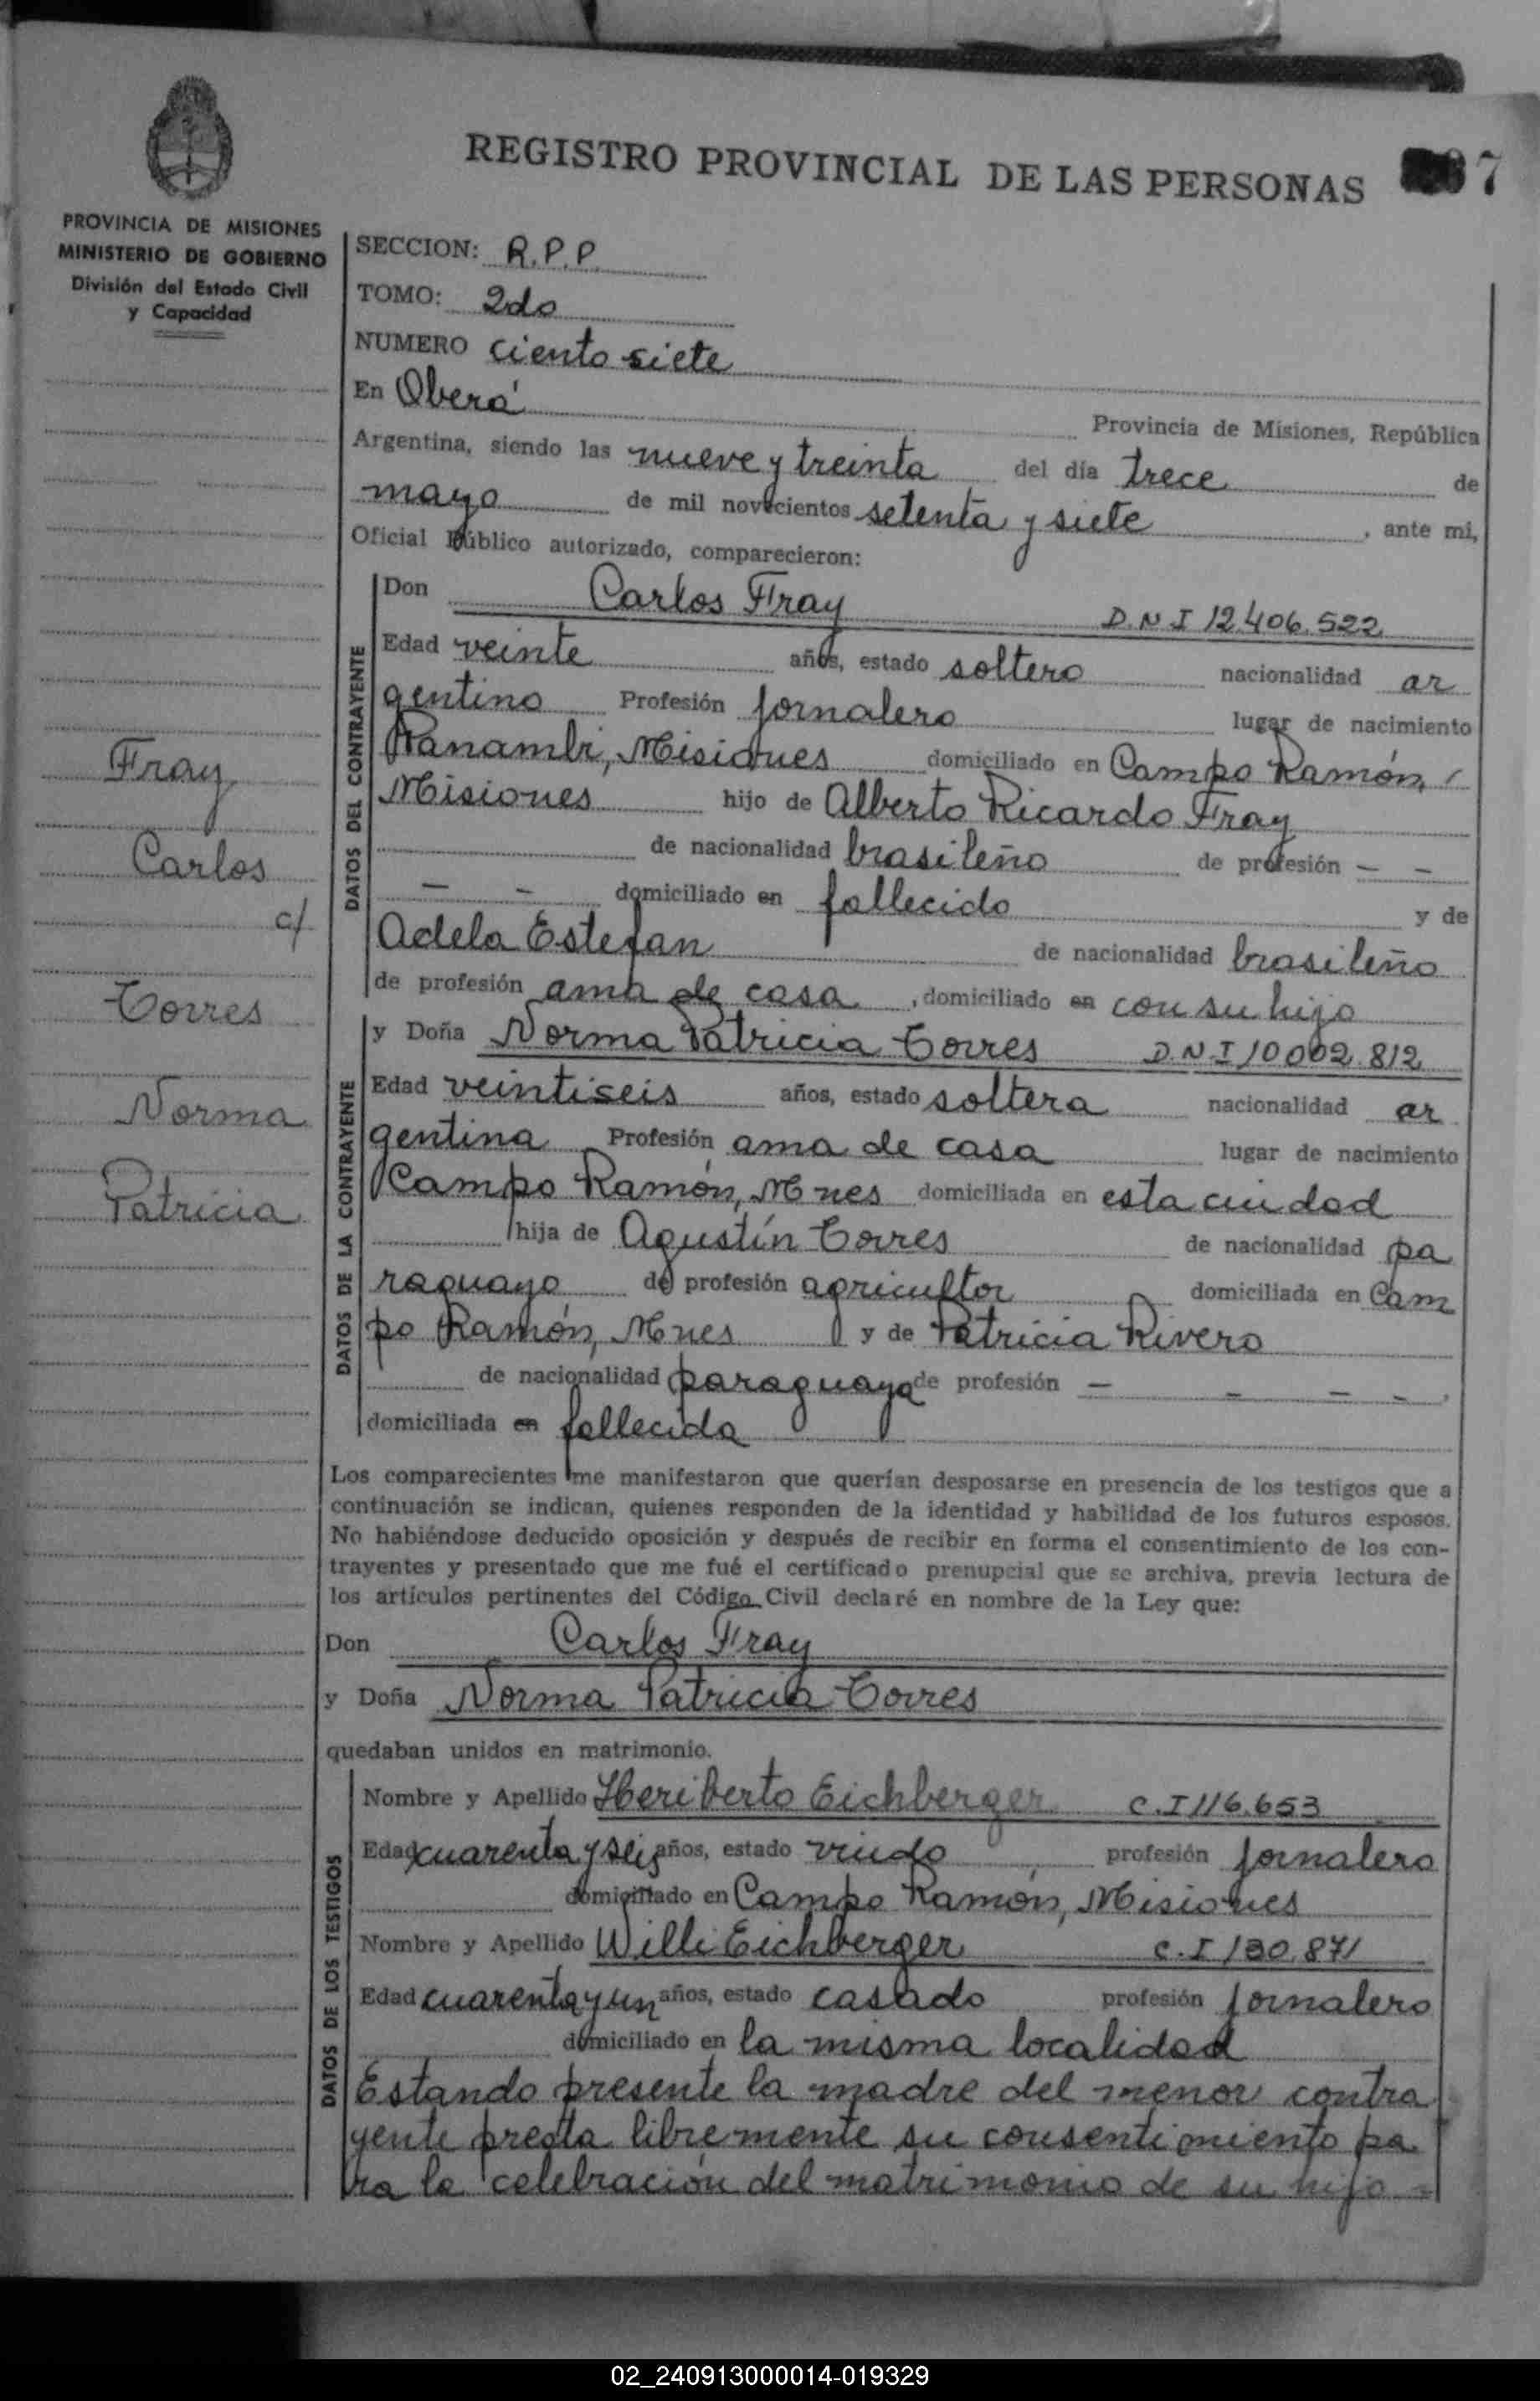 REGISTRO PROVINCIAL DE LAS PERSONAS 7
PROVINCIA DE MISIONES
MINISTERIO DE GOBIERNO
División del Estado Civil
y Capacidad
SECCION: R.P.P.
TOMO: 2do
NUMERO ciento siete
En Oberá
Provincia de Misiones, República
Argentina, siendo las nueve y treinta del día trece de
mayo de mil novecientos setenta y siete, ante mi,
Oficial Público autorizado, comparecieron:
Fray
Carlos
c/
Torres
Norma
Patricia
DATOS DEL CONTRAYENTE
Don Carlos Fray D.N.I 12.406.522
Edad veinte años, estado soltero nacionalidad ar
gentino Profesión jornalero lugar de nacimiento
Panambí, Misiones domiciliado en Campo Ramón,
Misiones hijo de Alberto Ricardo Fray
de nacionalidad brasileño de profesión — —
— — domiciliado en fallecido y de
Adela Estefan de nacionalidad brasileño
de profesión ama de casa, domiciliado en con su hijo
DATOS DE LA CONTRAYENTE
y Doña Norma Patricia Torres D.N.I 10.002.812
Edad veintiseis años, estado soltera nacionalidad ar
gentina Profesión ama de casa lugar de nacimiento
Campo Ramón, Mnes domiciliada en esta ciudad
hija de Agustín Torres de nacionalidad pa
raguayo de profesión agricultor domiciliada en Cam
po Ramón, Mnes y de Patricia Rivero
de nacionalidad paraguaya de profesión — — — —,
domiciliada en fallecida
Los comparecientes me manifestaron que querían desposarse en presencia de los testigos que a
continuación se indican, quienes responden de la identidad y habilidad de los futuros esposos.
No habiéndose deducido oposición y después de recibir en forma el consentimiento de los con-
trayentes y presentado que me fué el certificado prenupcial que se archiva, previa lectura de
los artículos pertinentes del Código Civil declaré en nombre de la Ley que:
Don Carlos Fray
y Doña Norma Patricia Torres
quedaban unidos en matrimonio.
DATOS DE LOS TESTIGOS
Nombre y Apellido Heriberto Eichberger C.I 116.653
Edad cuarenta y seis años, estado viudo profesión jornalero
domiciliado en Campo Ramón, Misiones
Nombre y Apellido Willi Eichberger C.I 130.871
Edad cuarenta y un años, estado casado profesión jornalero
domiciliado en la misma localidad
Estando presente la madre del menor contra
yente presta libremente su consentimiento pa
ra la celebración del matrimonio de su hijo =
02_240913000014-019329